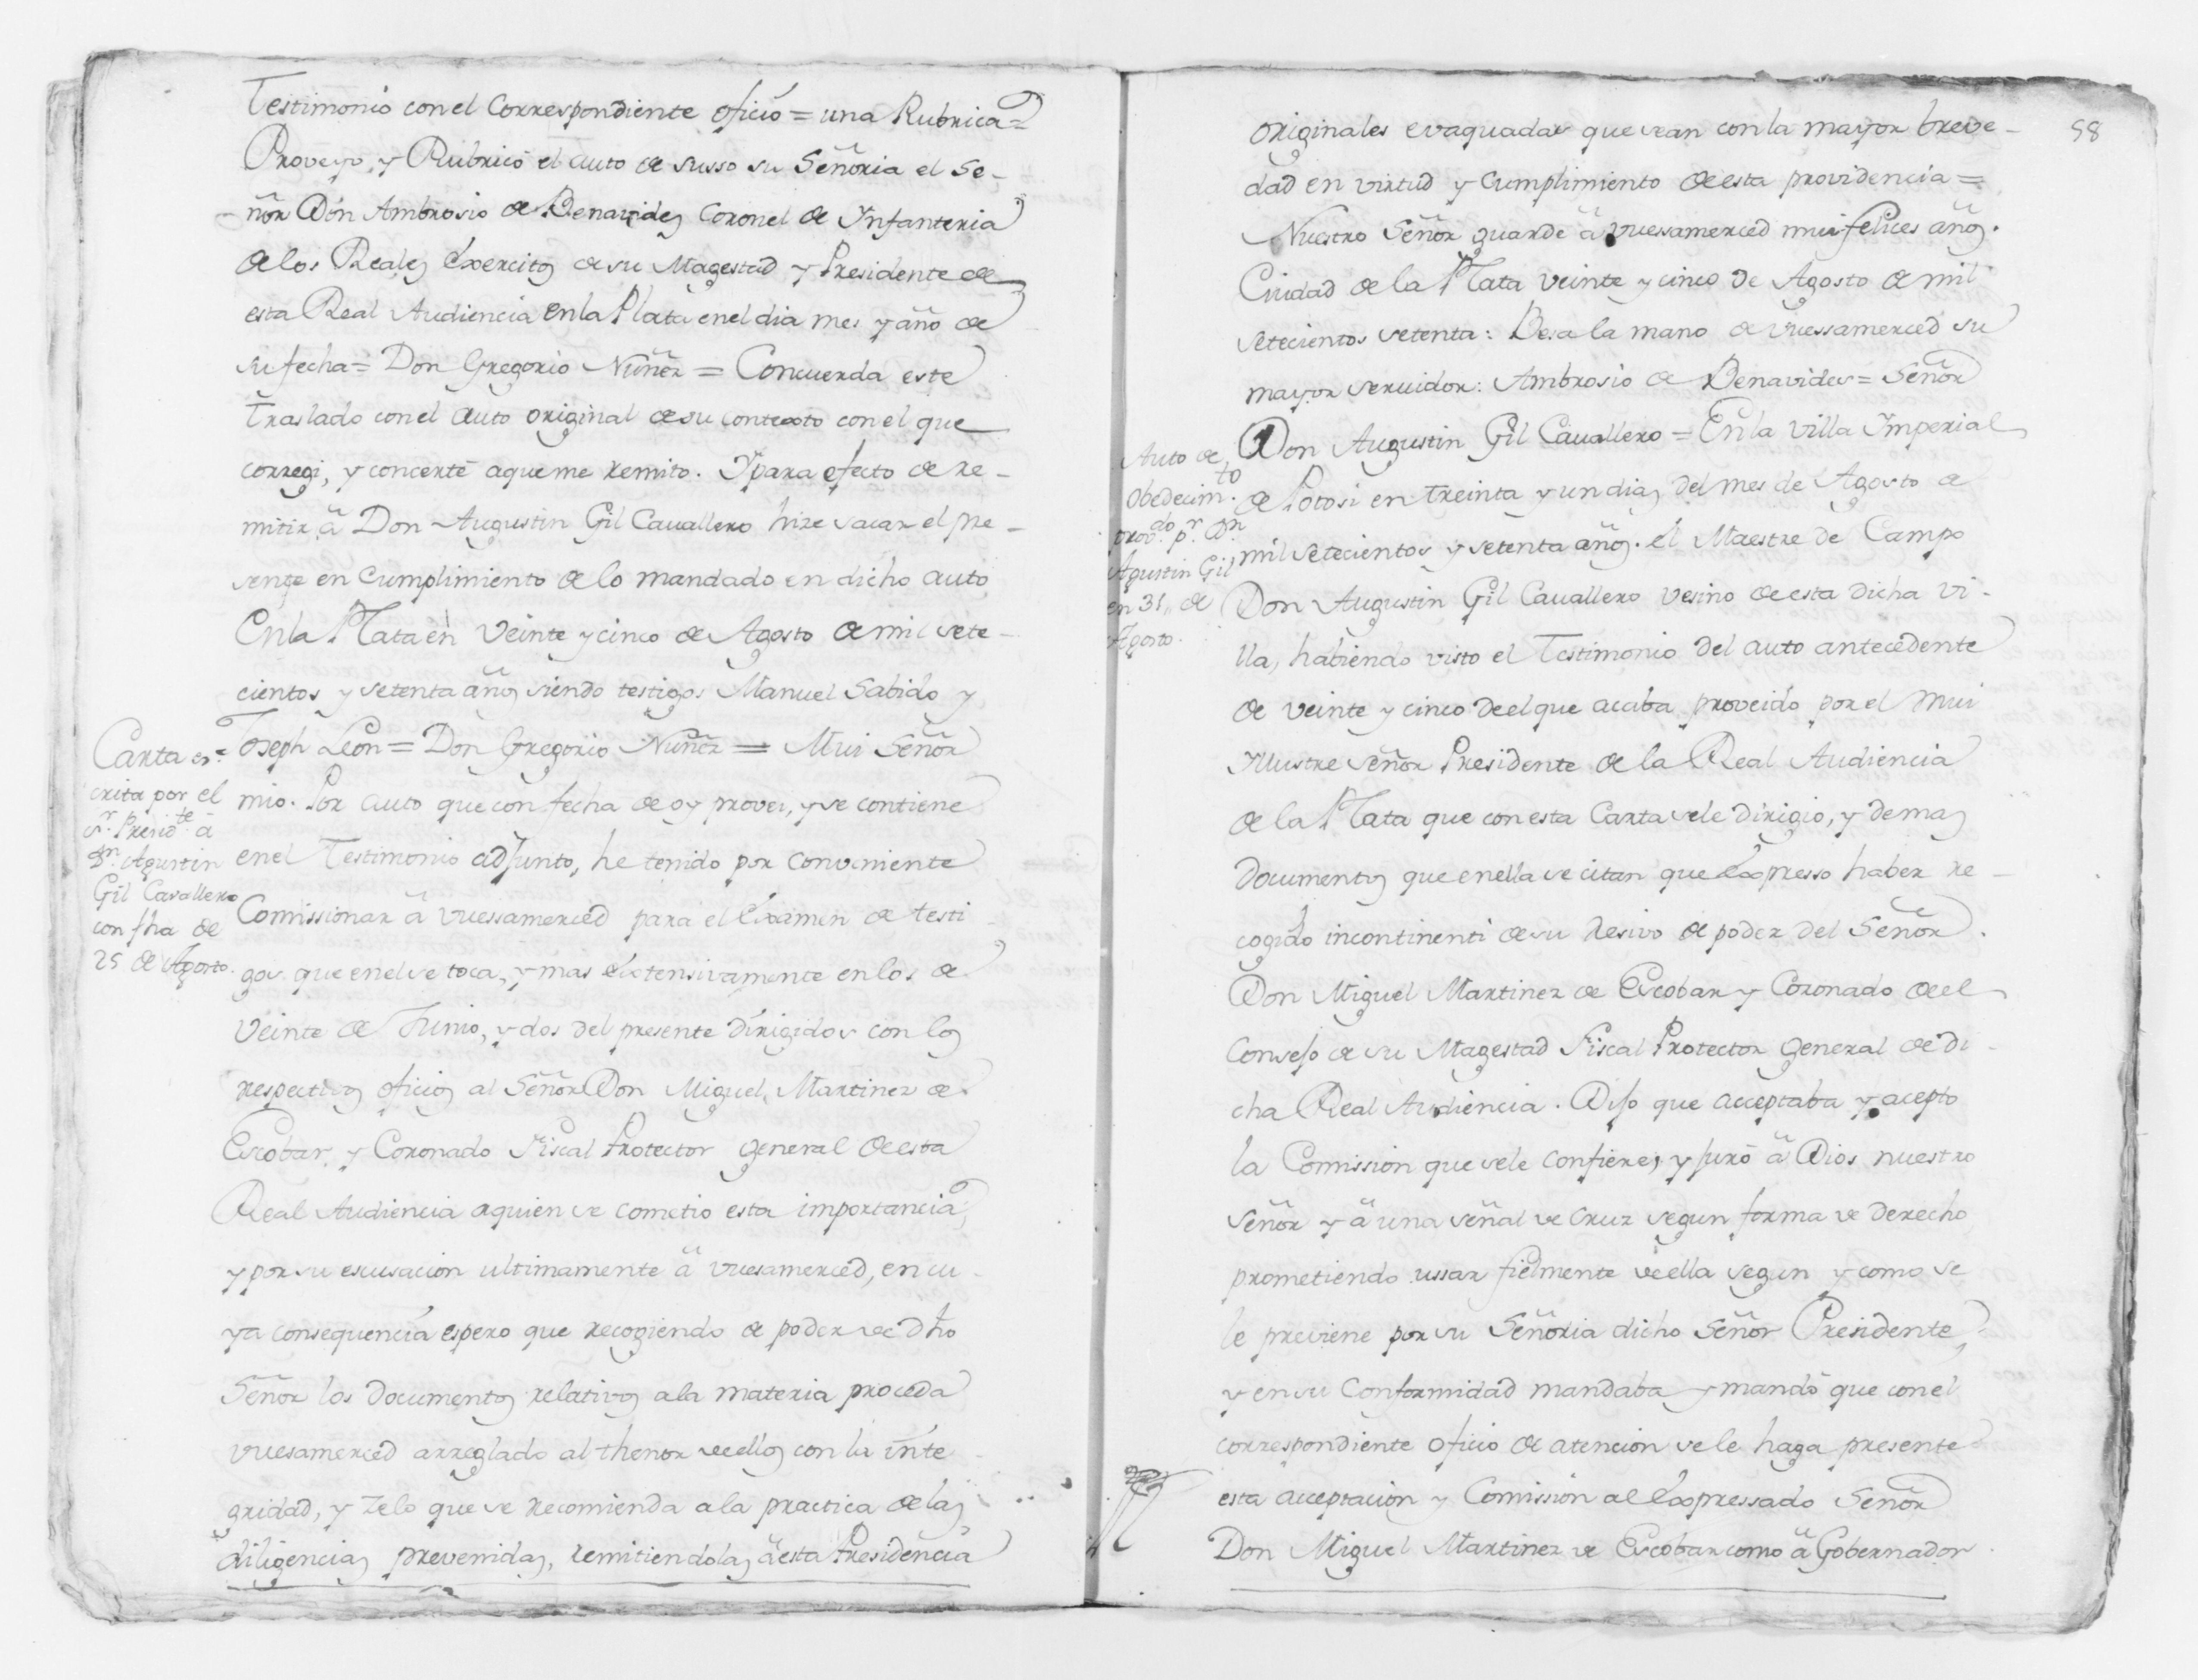 Testimonio con el Correspondiente oficio = una Rubrica =
Proveyo, y Rubricó el auto de susso su Señoria el Se-
ñor Don Ambrosio de Benavides Coronel de Ynfanteria
de los Reales Exercitos de su Magestad y Presidente de
esta Real Audiencia en la Plata en el dia mes y año de
su fecha = Don Gregorio Nuñez = Concuerda este
traslado con el auto original de su contexto con el que
corregi, y concerté a que me remito. Y para efecto de re-
mitir â Don Augustin Gil Cavallero hize sacar el pre-
sente en Cumplimiento de lo mandado en dicho auto
En la Plata en Veinte y cinco de Agosto de mil sete-
cientos y setenta años siendo testigos Manuel Sabido y
Joseph Leon = Don Gregorio Nuñez = Mui Señor
mio. Por auto que con fecha de oy provei, y se contiene
en el Testimonio adjunto, he tenido por conveniente
Comissionar â vuessamerced para el Examen de testi-
gos que en el se toca, y mas extensivamente en los de
Veinte de Junio, y dos del presente dirigidos con los
respectivos oficios al Señor Don Miguel Martinez de
Escobar, y Coronado Fiscal Protector general de esta
Real Audiencia a quien se cometio esta importancia,
y por su escusacion ultimamente â vuesamerced, en cu-
ya consequencia espero que recogiendo de poder de dho
Señor los documentos relativos a la materia proceda
vuesamerced arreglado al thenor de ellos con la inte-
gridad, y zelo que se recomienda a la practica de las
diligencias prevenidas, remitiendolas â esta Presidencia
Carta es-
crita por el
Sr. Presidte. â
Dn. Agustin
Gil Cavallero
con fha de
25 de Agosto.
58
originales evaquadas que sean con la mayor breve-
dad en virtud y Cumplimiento de esta providencia =
Nuestro Señor guarde â vuessamerced mui felices años.
Ciudad de la Plata Veinte y cinco de Agosto de mil
setecientos setenta: Besa la mano de vuessamerced su
mayor servidor: Ambrosio de Benavides = Señor
Don Augustin Gil Cavallero = En la Villa Ymperial
de Potosi en treinta y un dias del mes de Agosto de
mil setecientos y setenta años. el Maestre de Campo
Don Augustin Gil Cavallero vesino de esta dicha Vi-
lla, habiendo visto el Testimonio del auto antecedente
de veinte y cinco de el que acaba proveido por el Mui
Yllustre Señor Presidente de la Real Audiencia
de la Plata que con esta Carta se le dirigio, y demas
documentos que en ella se citan que Expresso haber re-
cogido incontinenti de su resivo de poder del Señor
Don Miguel Martinez de Escobar y Coronado de el
Consejo de su Magestad Fiscal Protector general de di-
cha Real Audiencia. Dijo que acceptaba y acepto
la Comission que se le confiere, y juró â Dios nuestro
Señor y â una señal de Cruz segun forma de derecho
prometiendo ussar fielmente de ella segun y como se
le previene por su Señoria dicho Señor Presidente,
y en su Conformidad mandaba y mandó que con el
correspondiente oficio de atencion se le haga presente
esta acceptacion y Comission al Expressado Señor
Don Miguel Martinez de Escobar como â Gobernador
Auto de
obedecimto.
provdo. pr. Dn.
Agustin Gil
en 31,, de
Agosto.